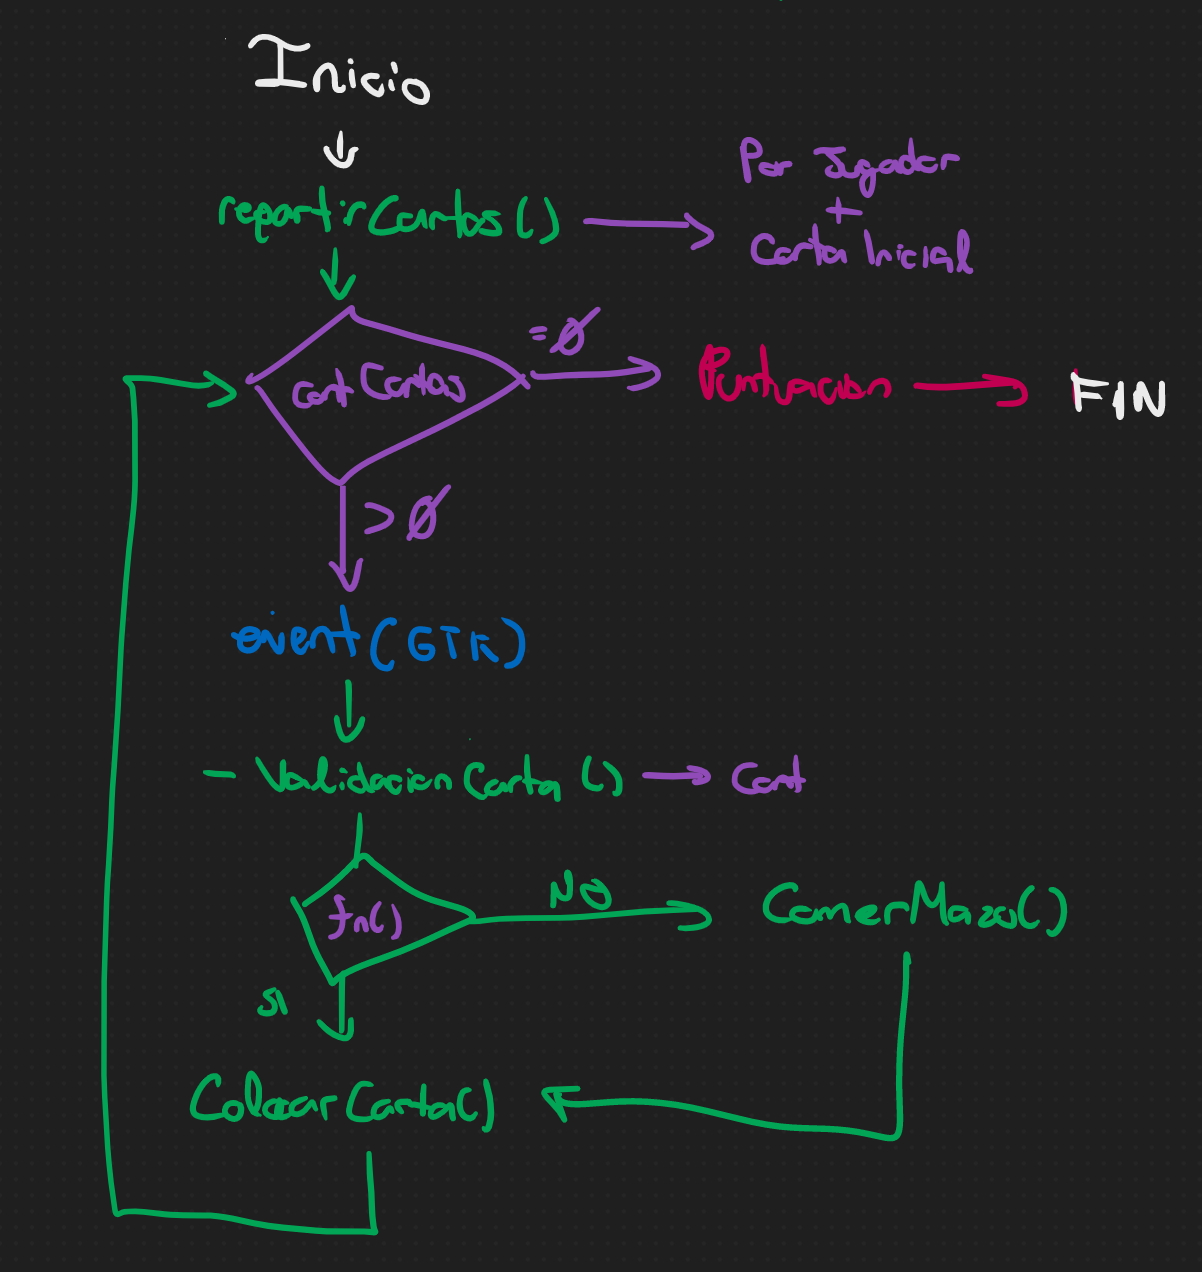 Inicio
repartirCartas()
Por Jugador
+
Carta Inicial
cant Cartas
=0
Puntuacion
FIN
>0
event(GTK)
- Validacion Carta ()
Cant
fn()
NO
ComerMazo()
SI
Colocar Carta()